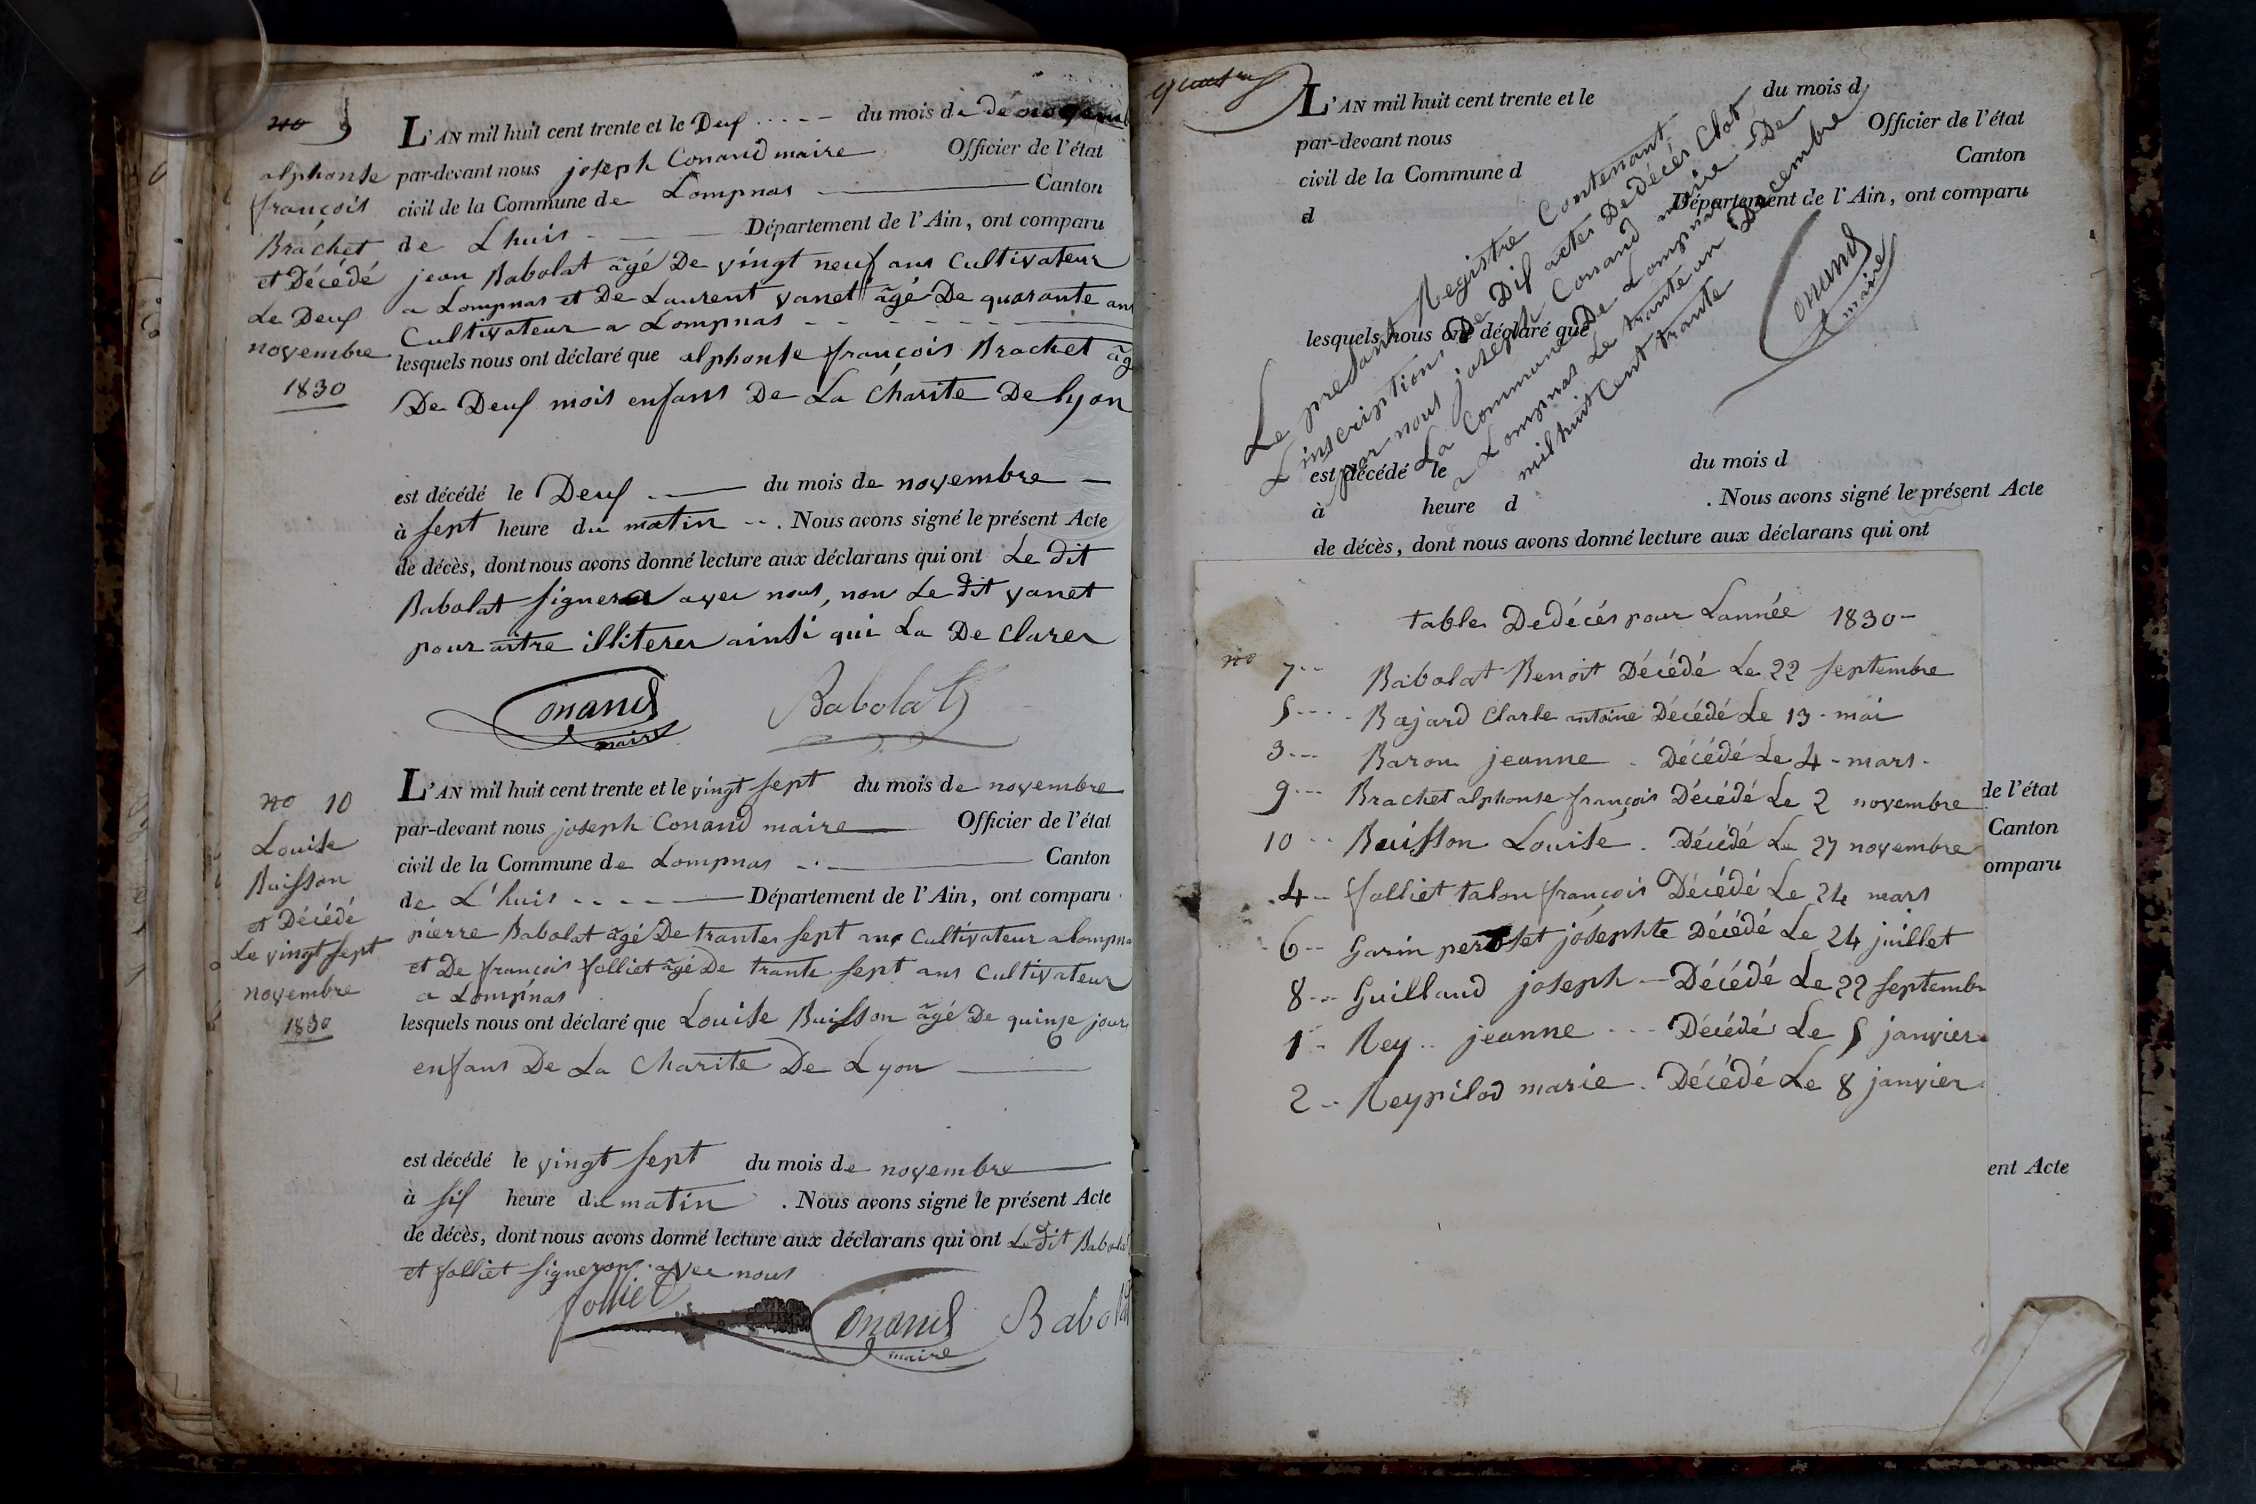 no 9
alphonse
françois
Brachet
et Décédé
Le Deuf
novembre
1830
L'AN mil huit cent trente et le Deuf du mois de novemb
par-devant nous joseph Conand maire Officier de l'état
civil de la Commune de Lompnas Canton
de Lhuis Département de l'Ain, ont comparu
jean Babolat âgé De vingt neuf ans Cultivateur
a Lompnas et De Laurent vanet âgé De quarante ans
Cultivateur a Lompnas
lesquels nous ont déclaré que alphonse françois Brachet âg
De Deuf mois enfant De La Charite De lyon
est décédé le Deuf du mois de novembre
à sept heure du matin . Nous avons signé le présent Acte
de décès, dont nous avons donné lecture aux déclarans qui ont Le dit
Babolat signera avec nous, non Le dit vanet
pour aître illiterer ainsi qui La De clarer
Conand Babolat
maire
no 10
Louise
Buisson
et Décédé
Le vingt sept
novembre
1830
L'AN mil huit cent trente et le vingt sept du mois de novembre
par-devant nous joseph Conand maire Officier de l'état
civil de la Commune de Lompnas Canton
de L'huis Département de l'Ain, ont comparu
pierre Babolat âgé De trantes sept ans Cultivateur a lompna
et De françois folliet âgé De trante sept ans Cultivateur
a Lompnas
lesquels nous ont déclaré que Louise Buisson âgé De quinze jour
enfant De La Charite De Lyon
est décédé le vingt sept du mois de novembre
à sif heure du matin . Nous avons signé le présent Acte
de décès, dont nous avons donné lecture aux déclarans qui ont Le dit Babolat
et folliet signerons avec nous
folliet Conand Babolat
maire
L'AN mil huit cent trente et le du mois d
par-devant nous Officier de l'état
civil de la Commune d Canton
d Département de l'Ain, ont comparu
lesquels nous ont déclaré que
est décédé le du mois d
à heure d . Nous avons signé le présent Acte
de décès, dont nous avons donné lecture aux déclarans qui ont
Le presant Registre Contenant
L inscription De Dif actes De décés Clot
par nous joseph Conand maire De
La Commune De Lompnas
a Lompnas Le trante un Decembre
mil huit Cent trante
Conand
maire
table De décés pour Lannée 1830
no 7 Babolat Benoit Décédé Le 22 septembre
5 Bajard Clarle antoine Décédé Le 13 mai
3 Baron jeanne Décédé Le 4 mars
9 Brachet alphonse françois Décédé Le 2 novembre
10 Buisson Louise Décédé Le 27 novembre
4 folliet talon françois Décédé Le 24 mars
6 Garin peroset joséphte Décédé Le 24 juillet
8 Guilland joseph Décédé Le 22 septembr
1 Rey jeanne Décédé Le 5 janvier
2 Reypilod marie Décédé Le 8 janvier
de l'état
Canton
omparu
ent Acte